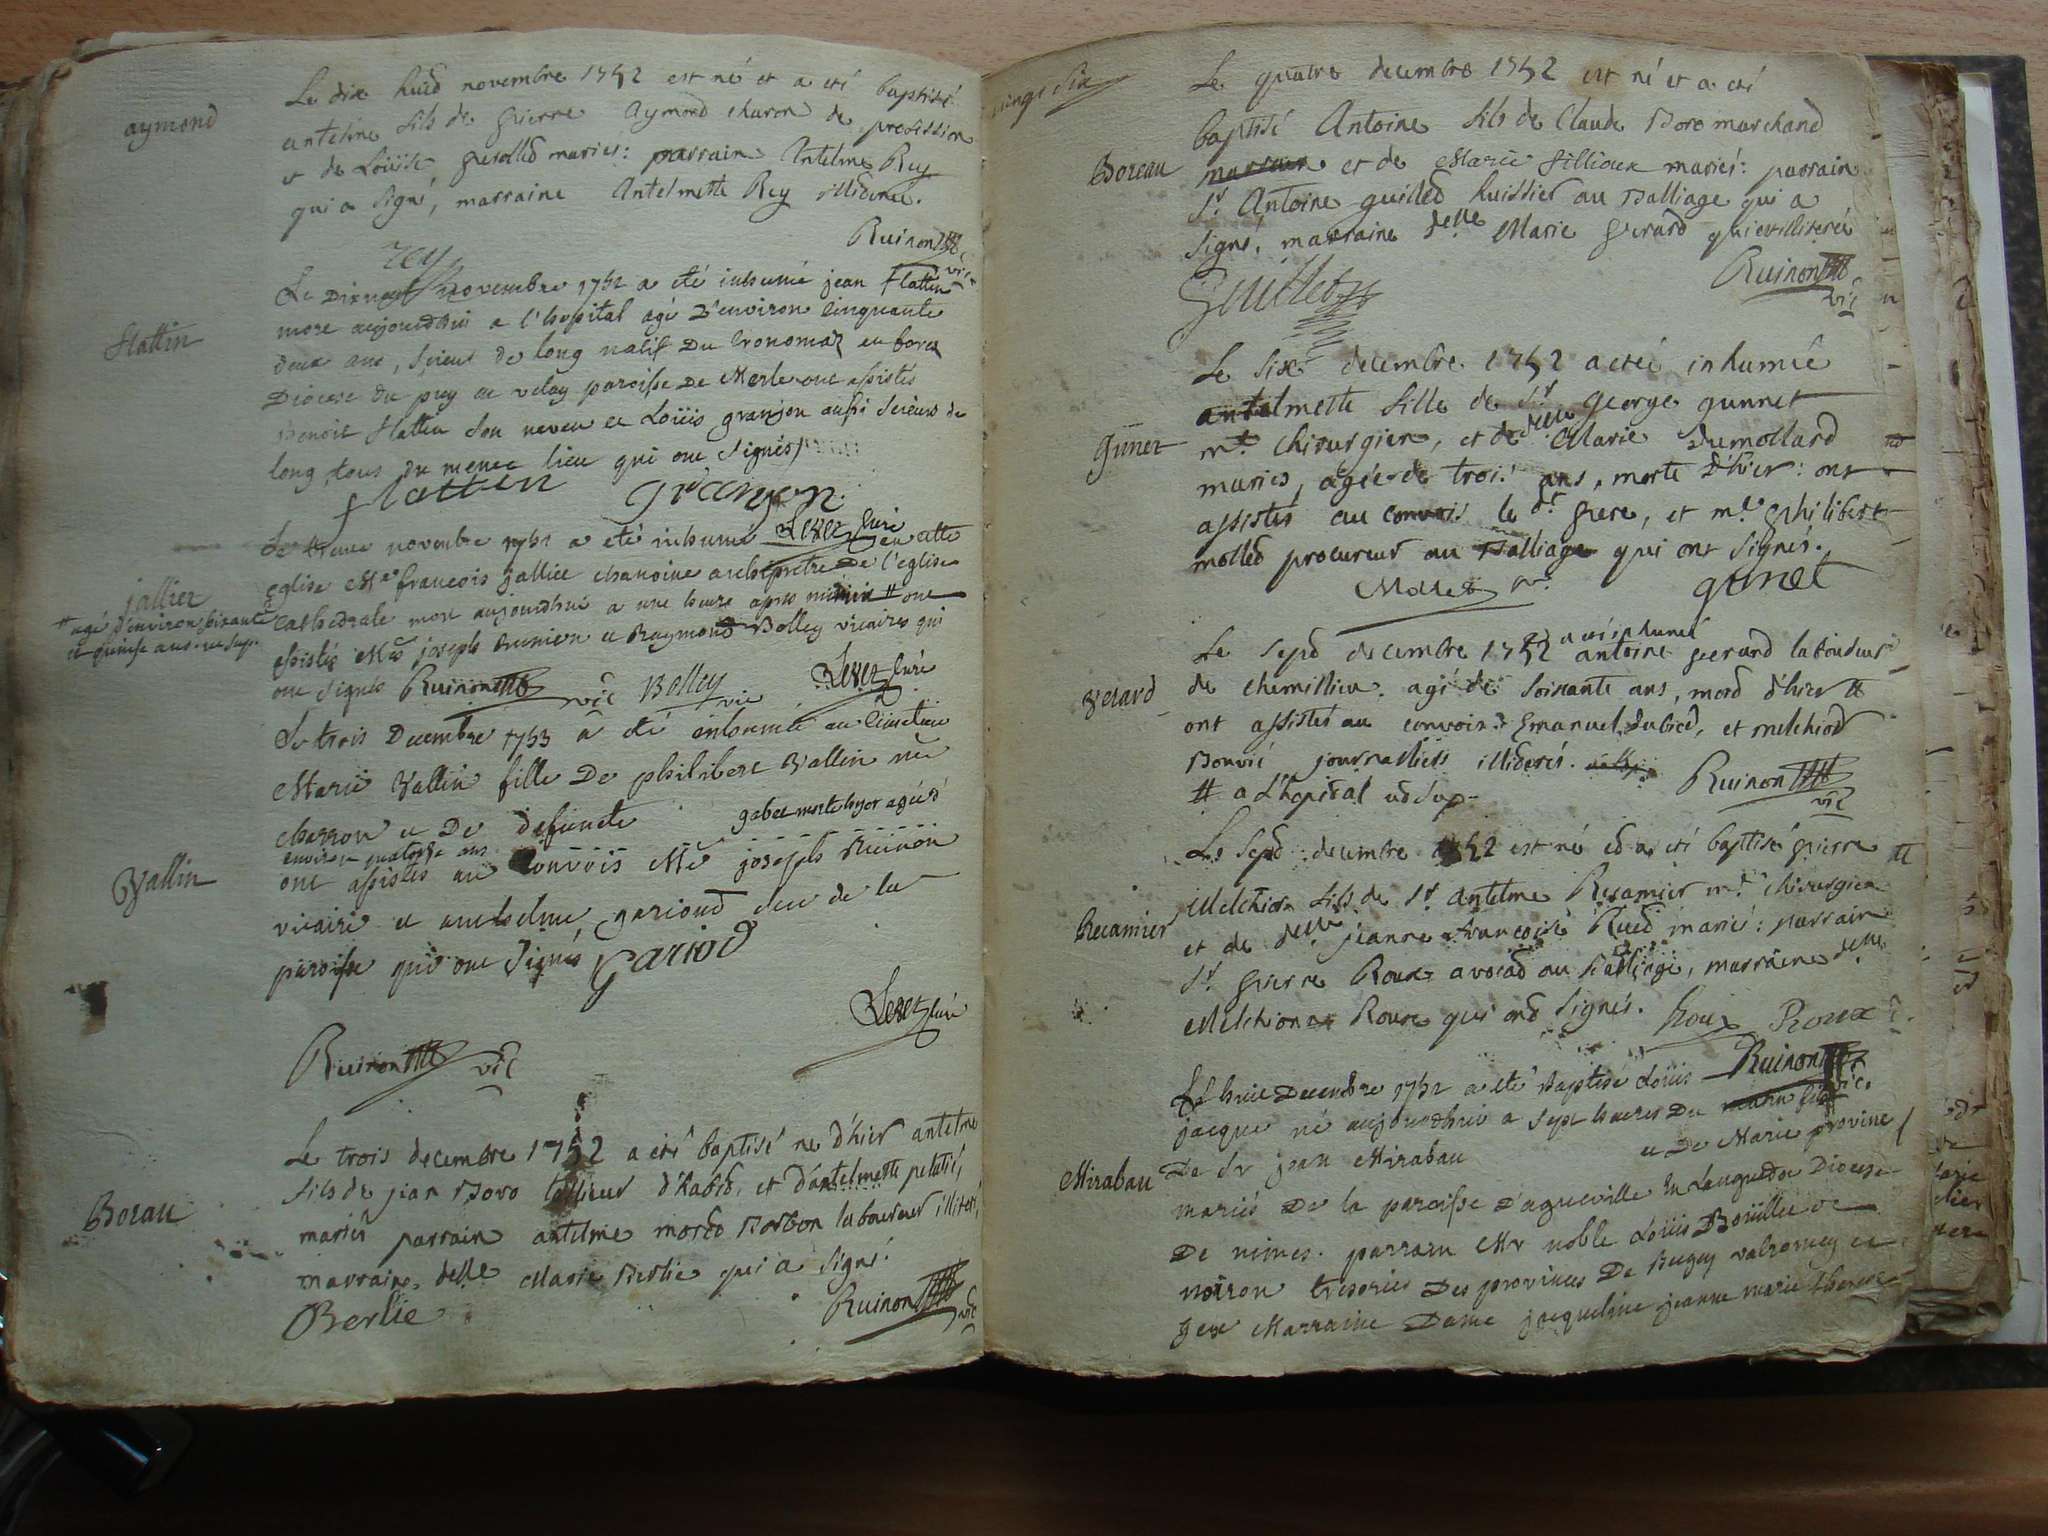 aymond
Le dix huid novembre 1752 est né et a eté baptisé
antelme fils de pierre Aymond charon de profession
et de Loüise mariés: parrain Antelme Rey
qui a signé, marraine Antelmette Rey illiterée.
rey
Ruinon vic
flattin
Le Dixneuf novembre 1752 a eté inhumé jean flatten
mort aujourdhui a l'hopital agé d'environ cinquante
deux ans, scieur de long natif du en forez
Diocese du puy en velay paroisse De Merle ont assistés
Benoit flatten son neveu et Loüis granjon aussi scieurs de
long tous du meme lieu qui ont signés
flatten granjon
Levez curé
jallier
Le trente novembre 1752 a eté inhumé en cette
eglise Mre francois jallier chanoine archiprêtre De l'eglise
Cathedrale mort aujourdhui a une heure apres minuit # ont
# agé d'environ soixante
et quinse ans. ut sup.
assistés Mres joseph Ruinon et Raymond Bolley vicaires qui
ont signés Ruinon vic Bolley vic Levez curé
Vallin
Le trois Decembre 1753 a eté inhumée au Cimetiere
Marie Vallin fille De philibert Vallin me
charron et De defuncte gabet morte hyer agée d
environ quatorse ans
ont assistés au convois Mre joseph Ruinon
vicaire et anthelme garioud clerc de la
paroisse qui ont signés gariod
Levez curé
Ruinon vic
Borau
Le trois decembre 1752 a eté baptisé né d'hier antelme
fils de jean Boro tallieur d'habid, et d'antelmette
mariés parrain antelme morod laboureur illiteré,
marraine delle Marie Berlie qui a signé.
Berlie
Ruinon vic
vingt six
Boreau
Le quatre decembre 1752 est né et a eté
baptisé Antoine fils de Claude Boro marchand
et de Marie fillioux mariés: parrain
Sr. Antoine guilled huissier au Balliage qui a
signé, marraine delle Marie gerard qui est illiterée
Guillet
Ruinon vic
gunet
Le six decembre 1752 a eté inhumée
antelmette fille de Sr george gunnet
mt. chirurgien, et de delle Marie dumollard
mariés, agée de trois ans, morte d'hier: ont
assistés au convois le dt. pere, et me. philibert
molled procureur au Balliage qui ont signés.
Mollet pr. gunet
Verard
Le sepd decembre 1752 a eté inhumé antoine gerard laboureur
de chemillieu. agé de soixante ans, mord d'hier #
ont assistés au convois Emanuel et melchiod
Bouvié journalliers illiderés.
# a L'hopidal ud sup.
Ruinon vic
Recamier
Le sepd decembre 1752 est né ed a eté baptisé pierre
Melchior fils de Sr. antelme Recamier mt. chirurgien
et de delle jeanne francoise mariés: parrain
Sr. pierre Roux avocad au Balliage, marraine delle
Melchionne Roux qui ond signés. Roux Roux
Ruinon vic.
Mirabau
Le huit Decembre 1752 a eté Baptisé Loüis
jacque né aujourdhui a sept heures Du matin fils
De Sr jean Mirabau et De Marie province
mariés De la paroisse D'agueville En Languedoc Diocese
De nimes. parrain Mr noble Loüis Boüillet de
noiron tresorier Des provinces De Bugey valromey et
gex Marraine Dame jacqueline jeanne marie therese